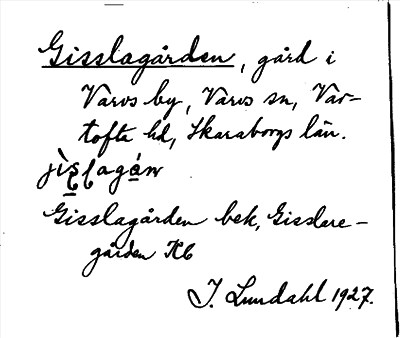 Gisslagården, gård i
Varvs by, Varvs sn, Var-
tofta hd, Skaraborgs län.
Gisslagården bek, Gisslere-
gården Kb
I. Lundahl 1927.